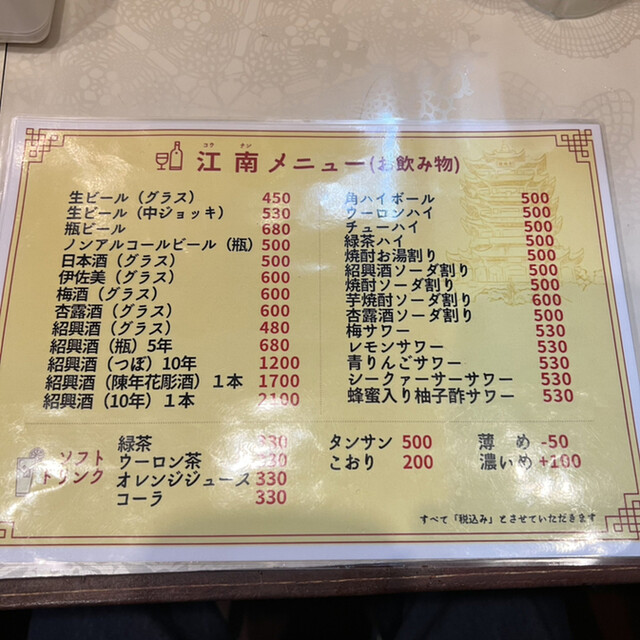 コウ ナン
江南メニュー(お飲み物)
生ビール（グラス） 450
生ビール（中ジョッキ） 530
瓶ビール 680
ノンアルコールビール（瓶） 500
日本酒（グラス） 500
伊佐美（グラス） 600
梅酒（グラス） 600
杏露酒（グラス） 600
紹興酒（グラス） 480
紹興酒（瓶）5年 680
紹興酒（つぼ）10年 1200
紹興酒（陳年花彫酒）１本 1700
紹興酒（10年）１本 2100
角ハイボール 500
ウーロンハイ 500
チューハイ 500
緑茶ハイ 500
焼酎お湯割り 500
紹興酒ソーダ割り 500
焼酎ソーダ割り 500
芋焼酎ソーダ割り 600
杏露酒ソーダ割り 500
梅サワー 530
レモンサワー 530
青りんごサワー 530
シークァーサーサワー 530
蜂蜜入り柚子酢サワー 530
ソフトドリンク
緑茶 330
ウーロン茶 330
オレンジジュース 330
コーラ 330
タンサン 500
こおり 200
薄め -50
濃いめ +100
すべて「税込み」とさせていただきます